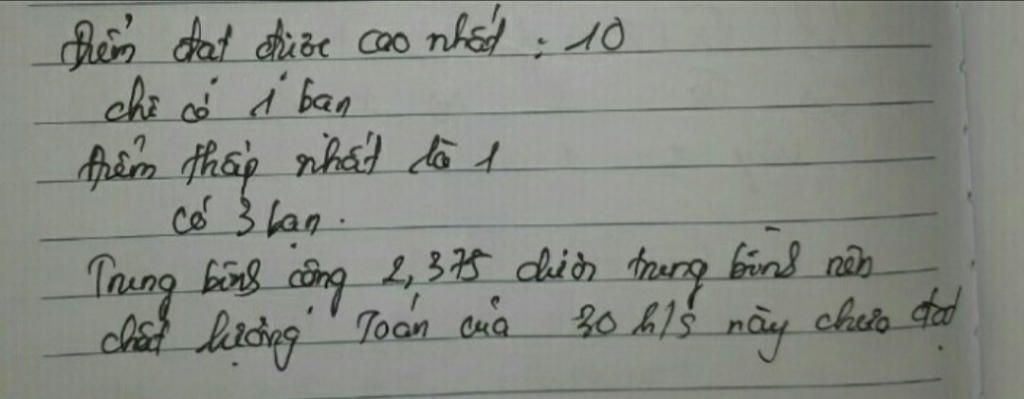 điểm đạt được cao nhất : 10
chỉ có 1 bạn
điểm thấp nhất là 1
có 3 bạn.
Trung bình cộng 2,375 dưới trung bình nên
chất lượng Toán của 30 h/s này chưa đạt